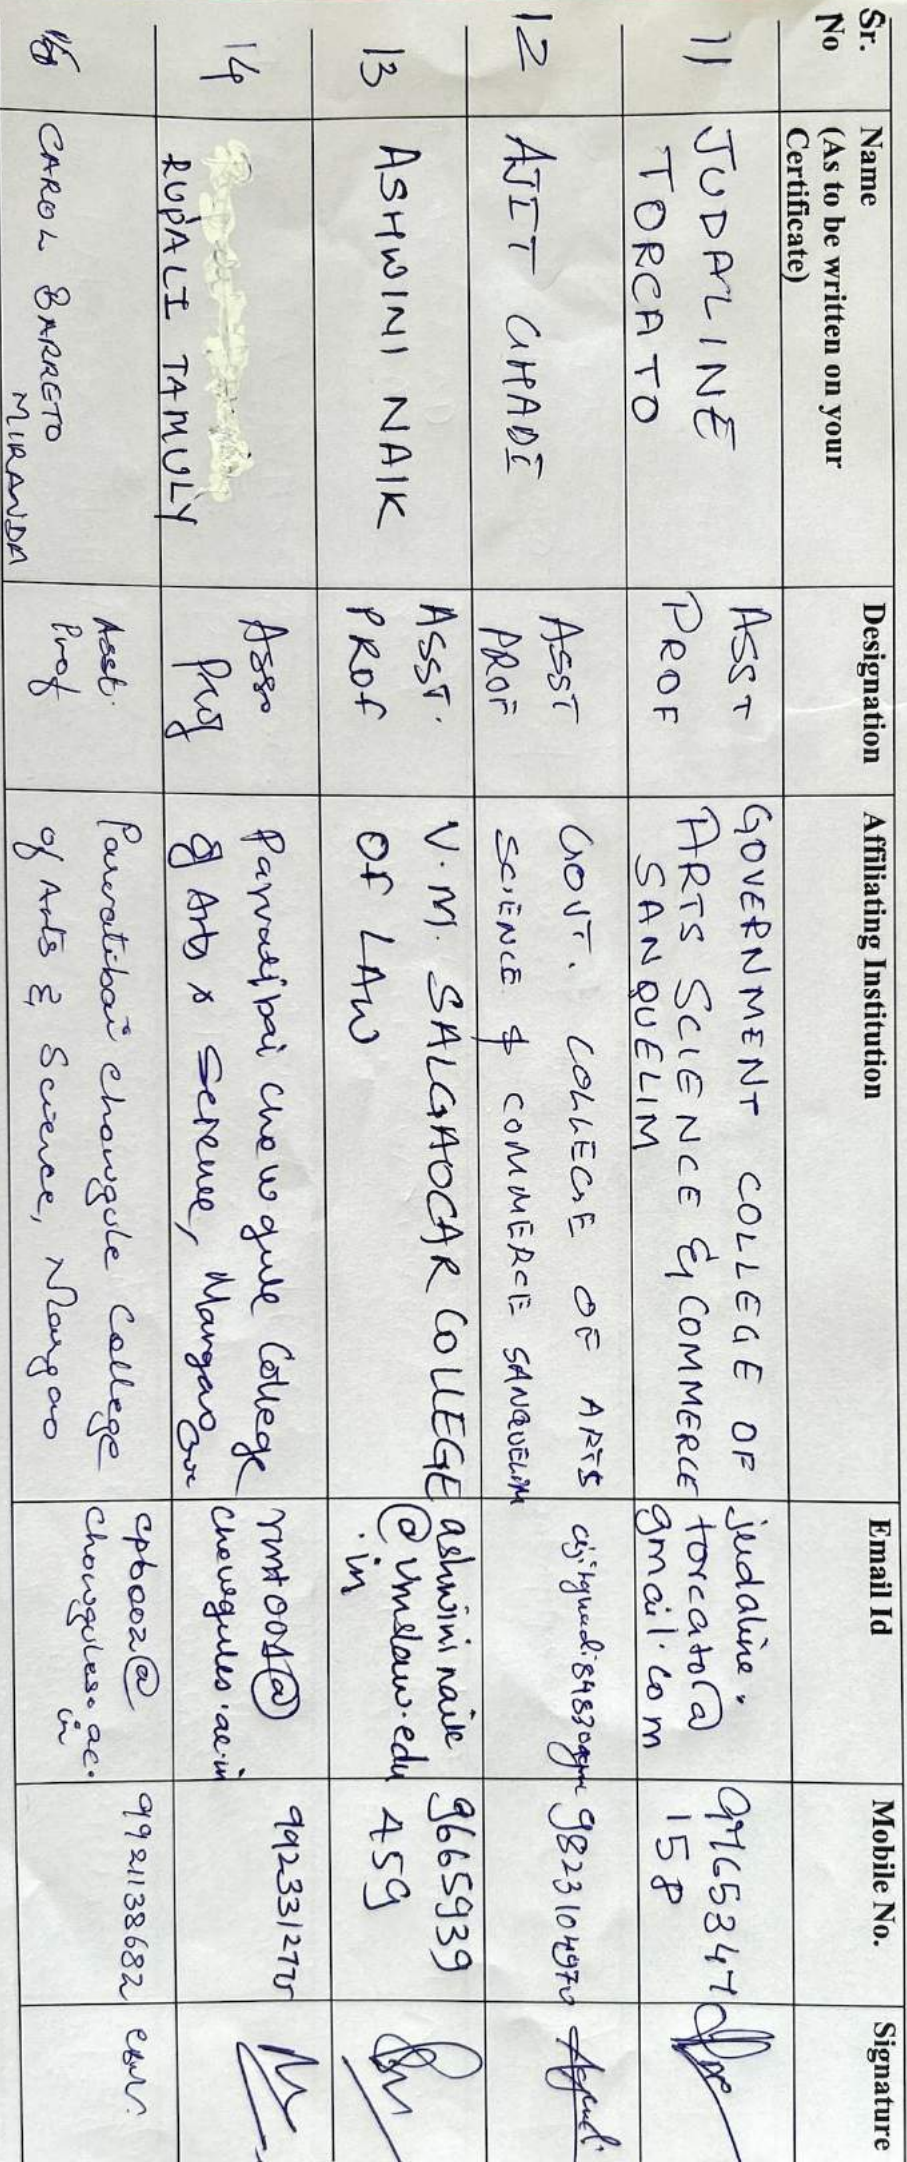 Sr. No
Name (As to be written on your Certificate)
Designation
Affiliating Institution
Email Id
Mobile No.
Signature
11
JUDALINE
TORCATO
ASST
PROF
GOVERNMENT COLLEGE OF
ARTS SCIENCE & COMMERCE
SANQUELIM
judaline.
torcato@
gmail.com
158
12
AJIT GHADI
ASST
PROF
GOVT. COLLEGE OF ARTS
SCIENCE & COMMERCE SANQUELIM
13
ASHWINI NAIK
ASST.
PROF
V.M. SALGAOCAR COLLEGE
OF LAW
ashwini naik
@vmslaw.edu
.in
9665939
459
14
RUPALI TAMULY
Asso
Prof
Parvatibai Chowgule College
of Arts & Science, Margao
chowgules.ac.in
CAROL BARRETO
MIRANDA
Asst.
Prof
Parvatibai Chowgule College
of Arts & Science, Margao
cpb002@
chowgules.ac.
in
9921138682